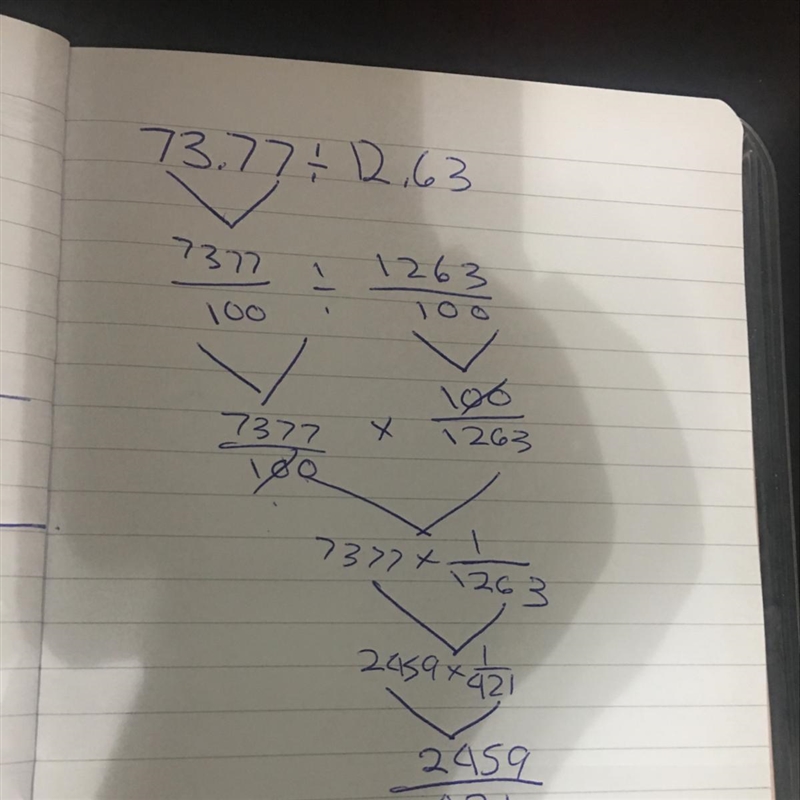 73.77 ÷ 12.63
7377/100 ÷ 1263/100
7377/100 × 100/1263
7377 × 1/1263
2459 × 1/421
2459